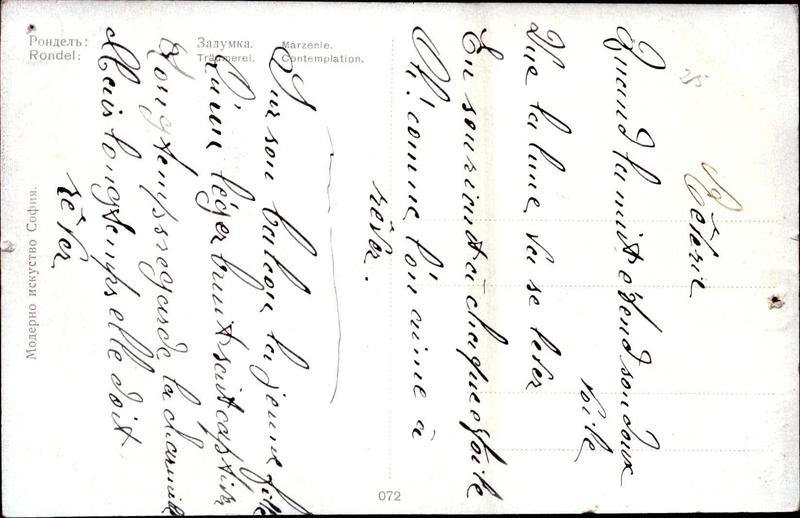 Рондель:
Rondel:
Задумка.
Träumerei.
Marzenie.
Contemplation.
Модерно искуство София.
072
25
Rêverie
Quand la nuit étend son doux
voile
Que la lune va se lever
En souriant à chaque étoile
Oh! comme l'on aime à
rêver.
Sur son balcon la jeune fille
L'âme léger bruit sait captiver
Longtemps regarde la
Mais longtemps elle doit
rêver